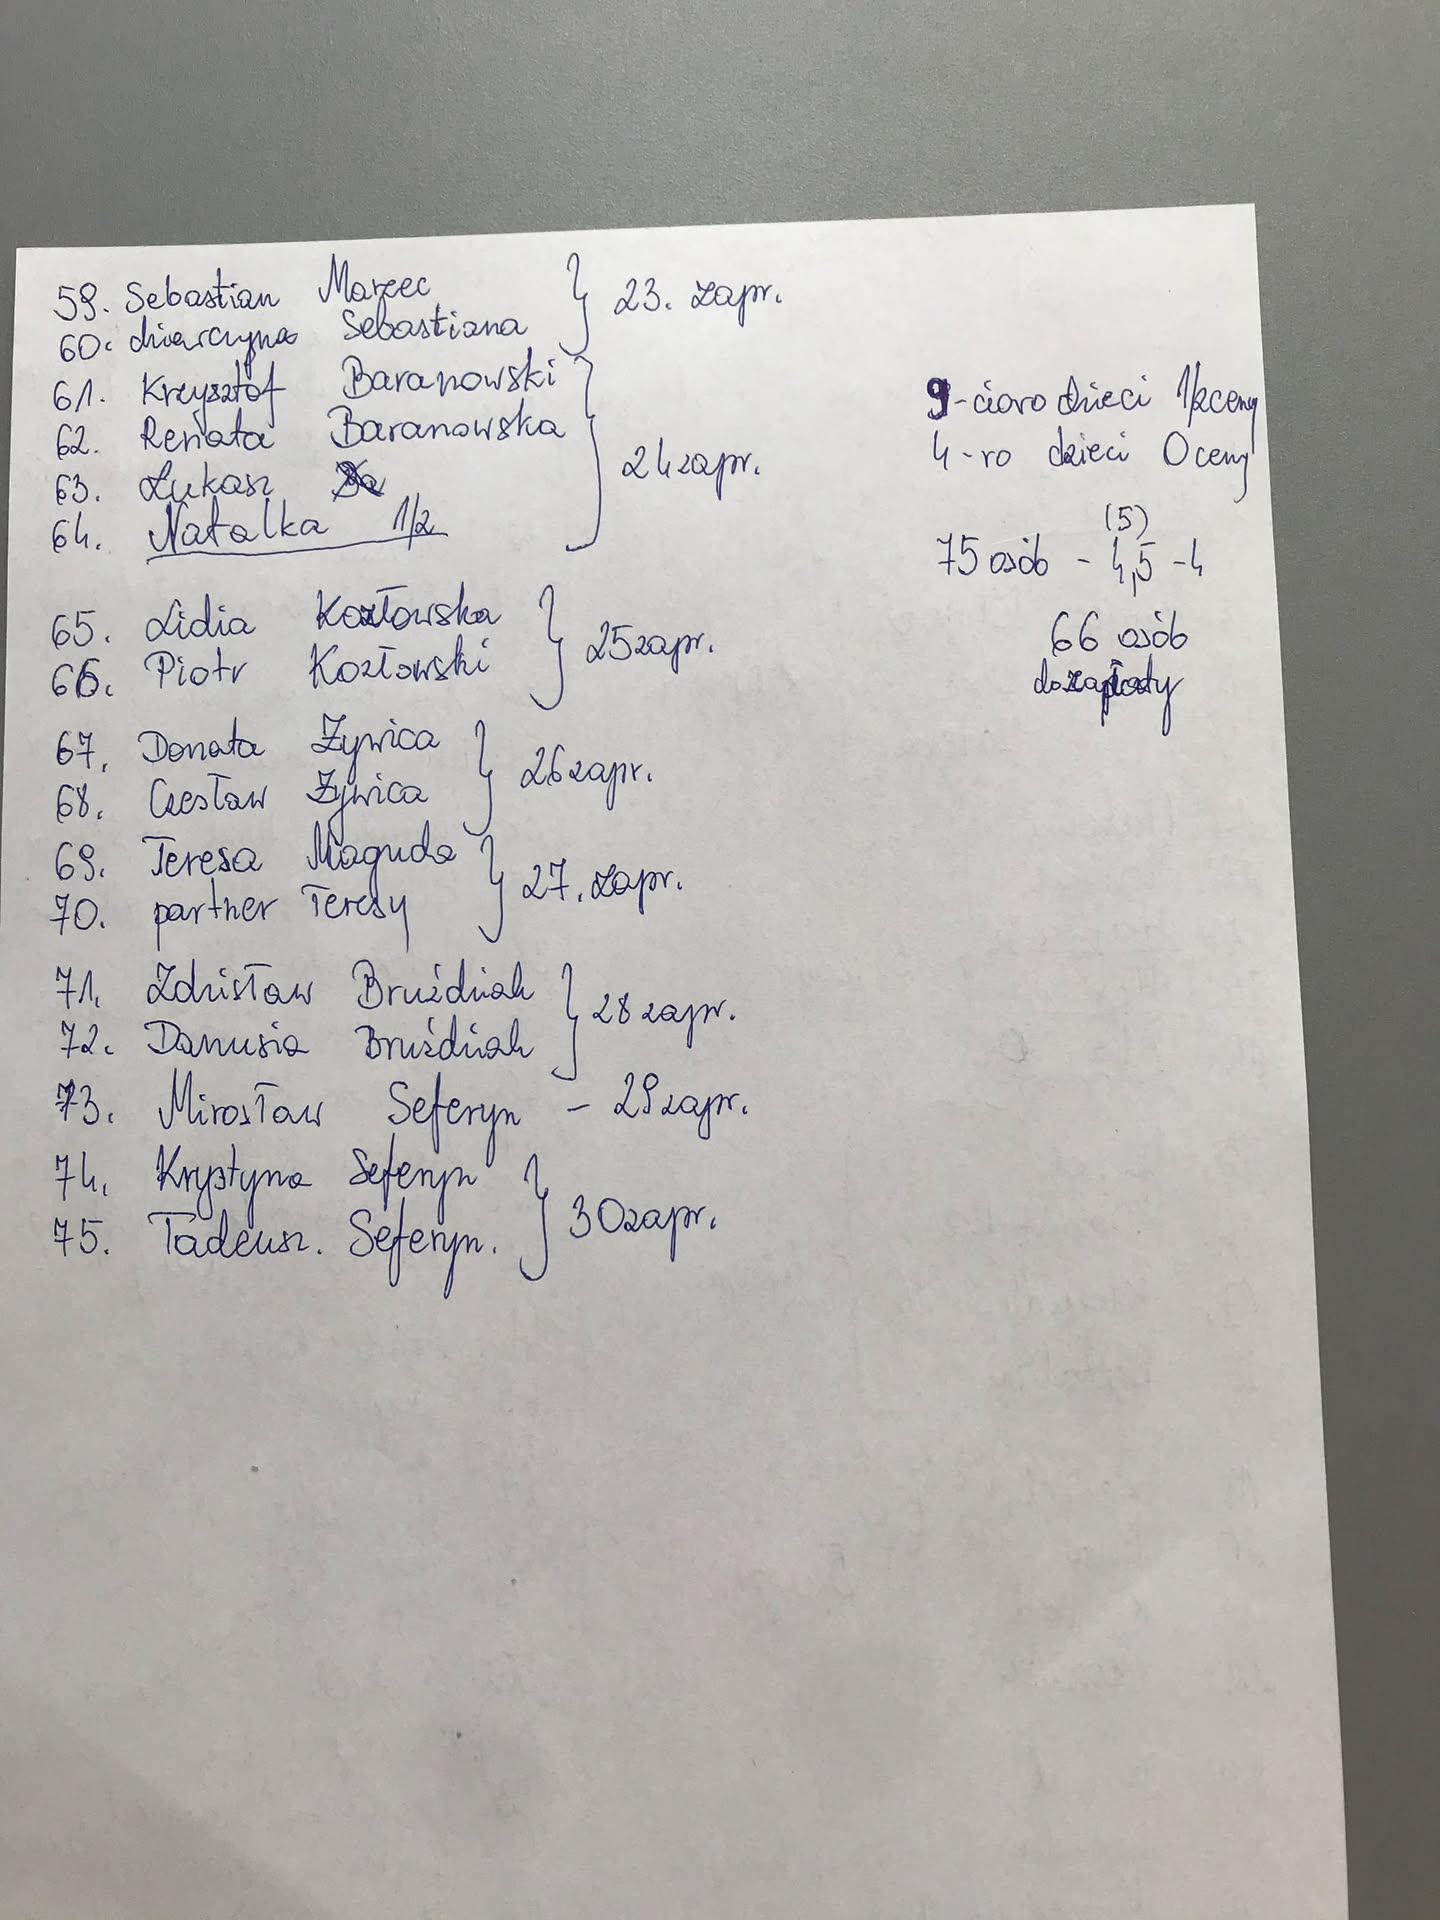 59. Sebastian Marzec } 23. zapr.
60. dziewczyna Sebastiana
61. Krzysztof Baranowski
62. Renata Baranowska } 24 zapr.
63. Łukasz
64. Natalka 1/2
65. Lidia Kozłowska } 25 zapr.
66. Piotr Kozłowski
67. Donata Żywica } 26 zapr.
68. Czesław Żywica
69. Teresa Maguda } 27. zapr.
70. partner Teresy
71. Zdzisław Bruździak } 28 zapr.
72. Danusia Bruździak
73. Mirosław Seferyn - 29 zapr.
74. Krystyna Seferyn } 30 zapr.
75. Tadeusz. Seferyn.
9-cioro dzieci 1/2 ceny
4-ro dzieci 0 ceny
(5)
75 osób - 4,5 - 4
66 osób
do zapłaty